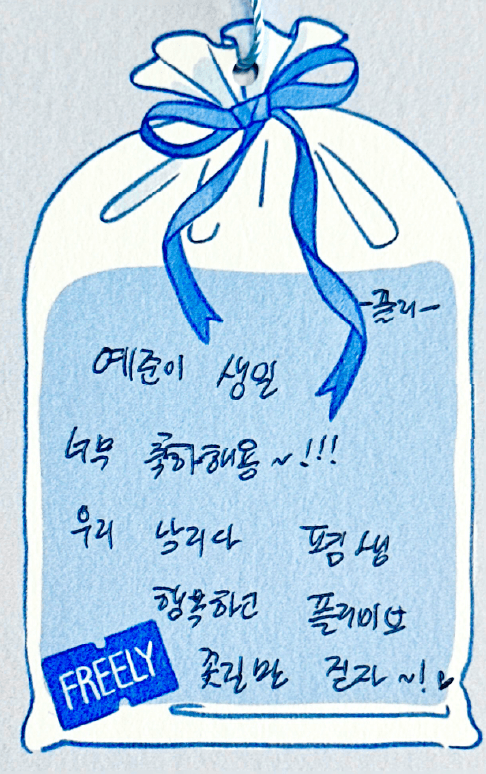 -플리-
예준이 생일
너무 축하해용~!!!
우리 남리다 평생
행복하고 플레이브
꽃길만 걷자~!♥
FREELY